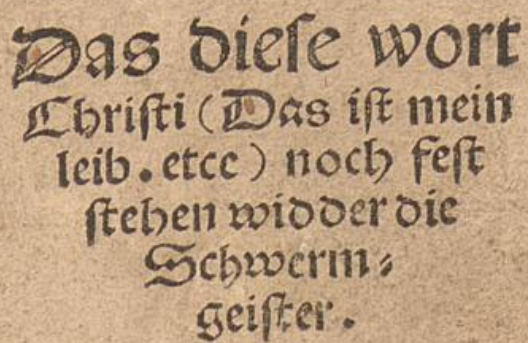 Das dieſe wort
Chriſti (Das iſt mein
leib. etcc) noch feſt
ſtehen widder die
Schwerm⸗
geiſter.